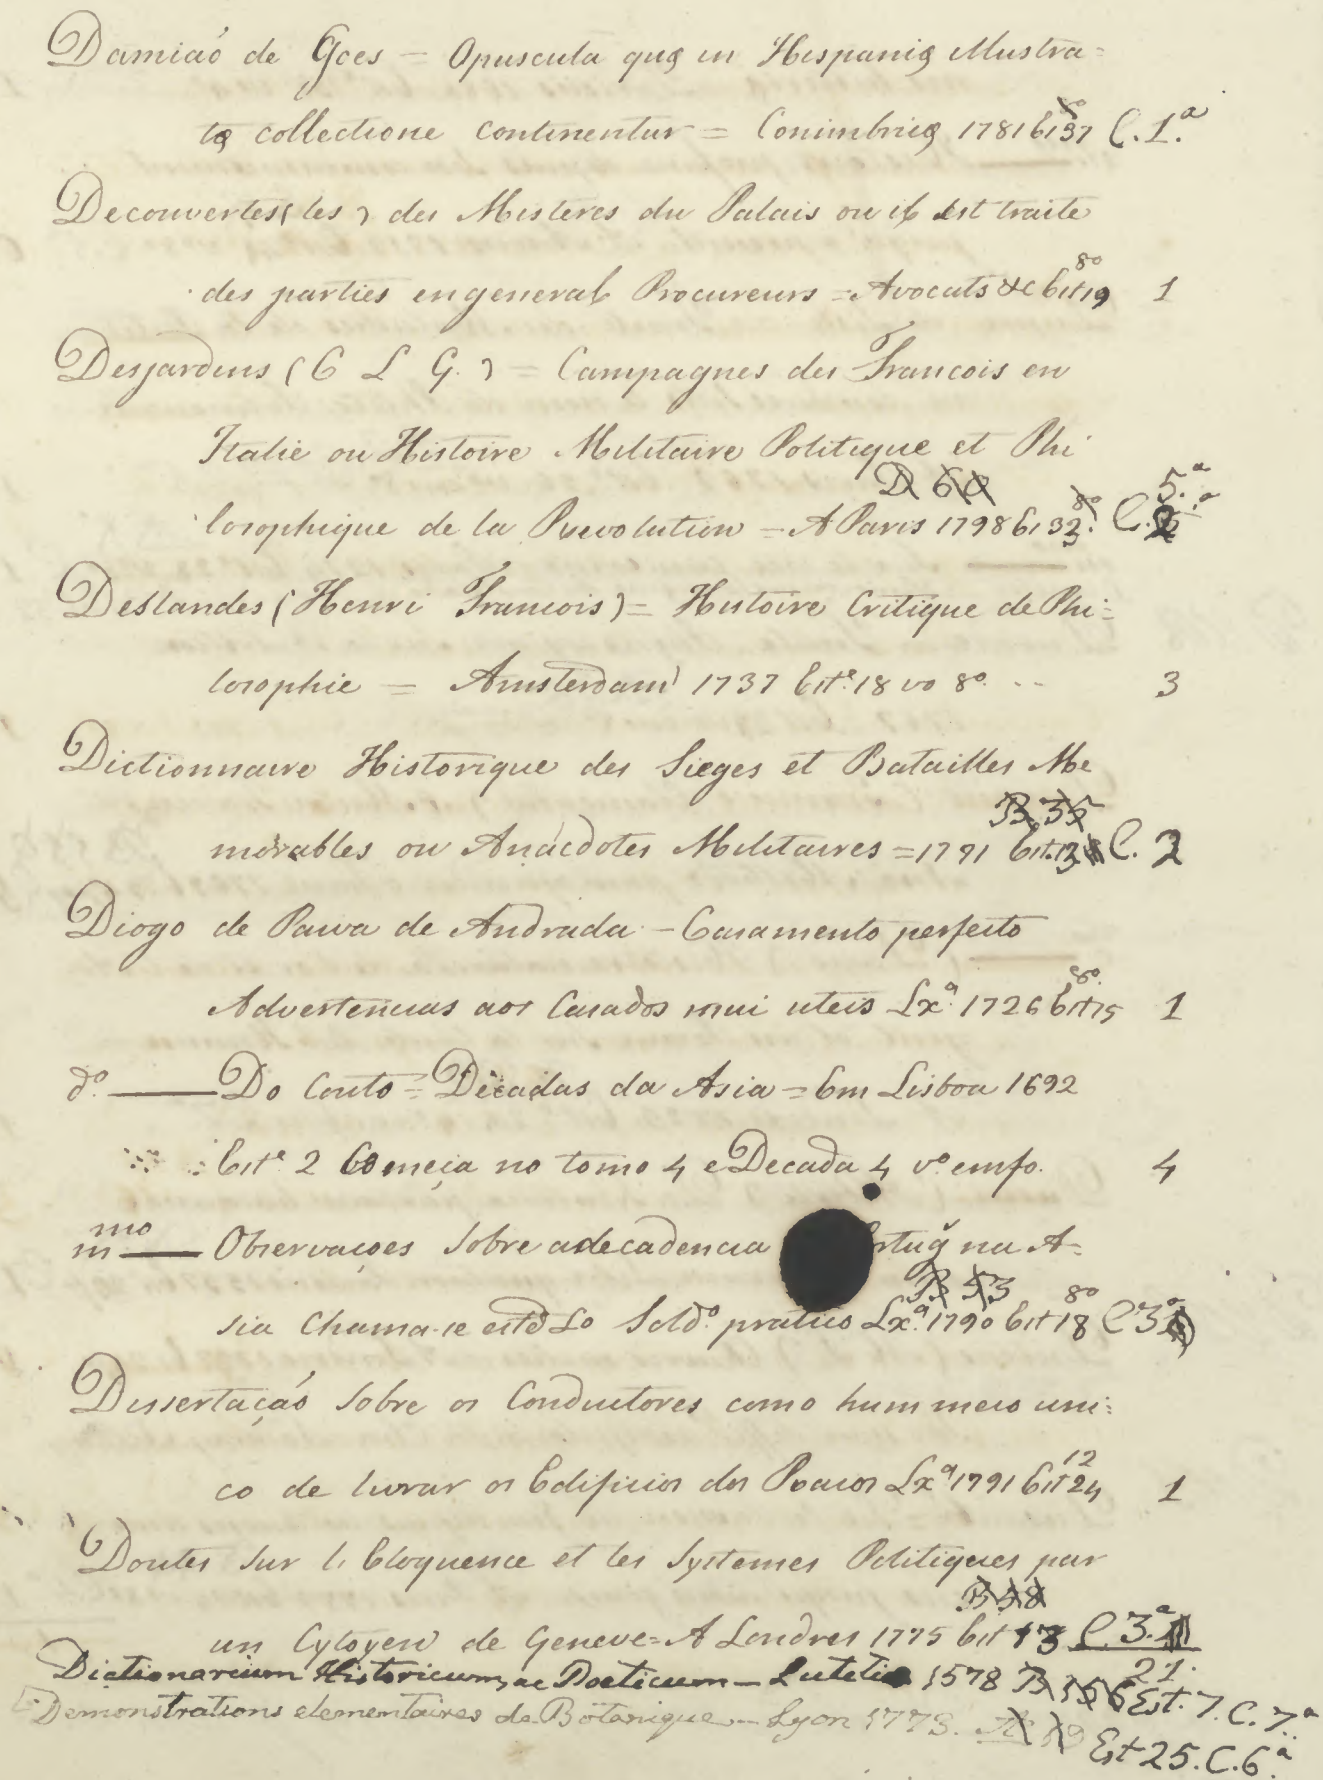 Damiaõ de Goes = Opuscula quę in Hispanię Illustra=
tę collectione continentur = Conimbrię 1781 Est 37 C. 1.ª
Decouvertes (les) des Misteres du Palais ou il est traite
8º
des parties en general Procureurs = Avocats &c Est 19 1
Desjardins (C L G.) = Campagnes des Francois en
Italie ou Histoire Militaire Politique et Phi
D 60 5.ª
losophique de la Revolution = A Paris 1798 Est 32 8º C.
Deslandes (Henri Francois) = Histoire Critique de Phi=
losophie = Amsterdam 1737 Est.e 18 vo 8º 3
Dictionnaire Historique des Sieges et Batailles Me
B 35
morables ou Anécdotes Militaires = 1791 Est. C. 2
Diogo de Paiva de Andrada - Casamento perfeito
8º
Advertencias aos Casados mui uteis Lxª 1726 Est 15 1
dº. — Do Couto = Decadas da Asia = Em Lisboa 1692
Est.e 2 Começa no tomo 4 e Decada 4 vº em fo. 4
mmo — Observaçoes sobre a decadencia rtug na A=
B 53 8º
sia Chama-se este Lo Soldº pratico Lxª 1790 Est 18 C 3ª
Dissertaçaõ sobre os Conductores como hum meio uni=
12
co de livrar os Edificios dos Raios Lxª 1791 Est 24 1
Doutes sur l. Eloquence et les Systemes Politiques par
B 58
un Cytoyen de Geneve = A Londres 1775 Est 13 C. 3.ª
21.
Dictionarium Historicum, ac Poeticum - Lutetie 1578 B 156 Est. 7. C. 7.ª
Demonstrations elementaires de Botanique - Lyon 1773.
Est 25. C. 6.ª